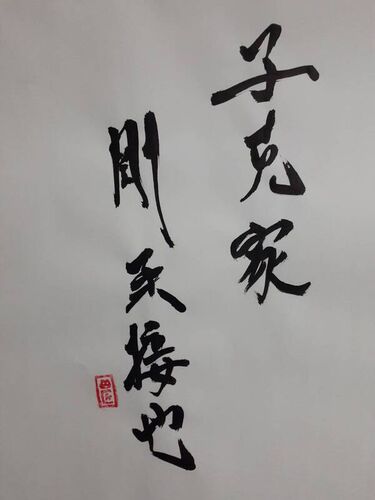 子克家
剛柔接也